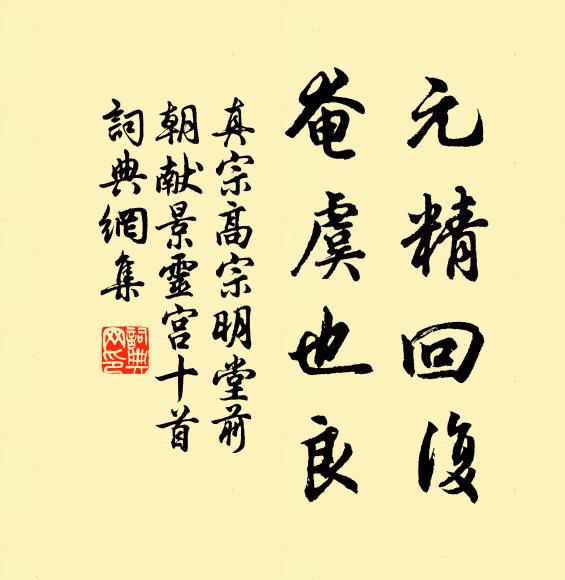 元精回復
奄虞也良
真宗高宗明堂前
朝献景靈宫十首
詞典網集
詞典網印